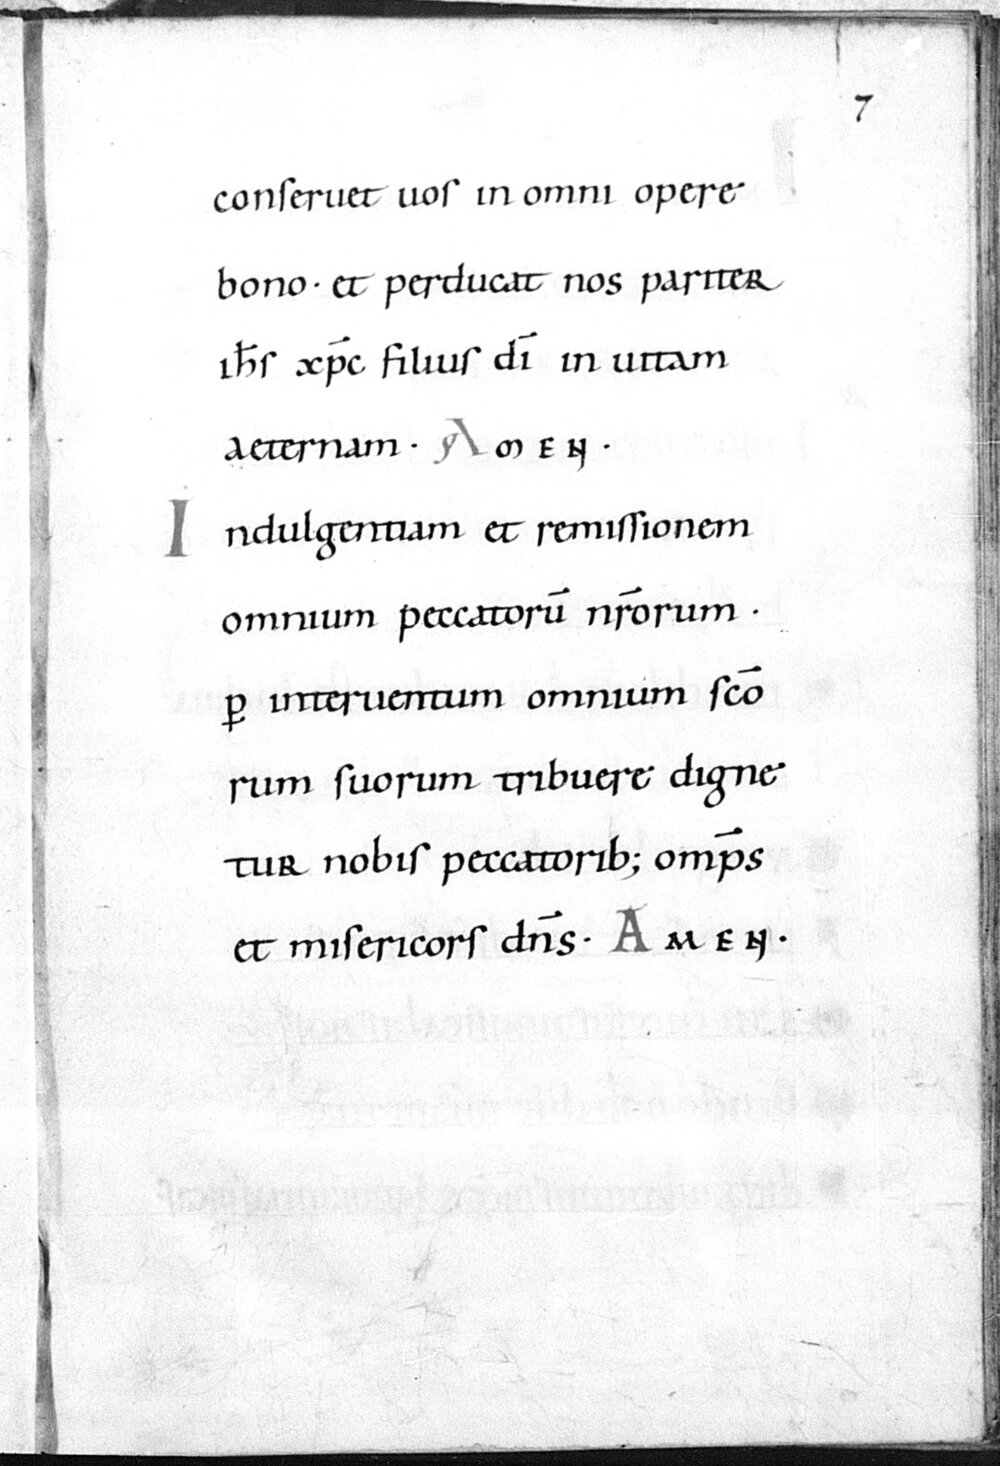 7
conſeruet uoſ in omni opere
bono · et perducat nos pariter
ih̅ſ xp̅c filiuſ di̅ in uitam
aeternam · Amen ·
Indulgentiam et remiſſionem
omnium peccatoru̅ nr̅orum ·
ꝑ interuentum omnium ſco̅
rum ſuorum tribuere digne
tur nobiſ peccatorib; omp̅s
et miſericorſ dn̅s · Amen ·